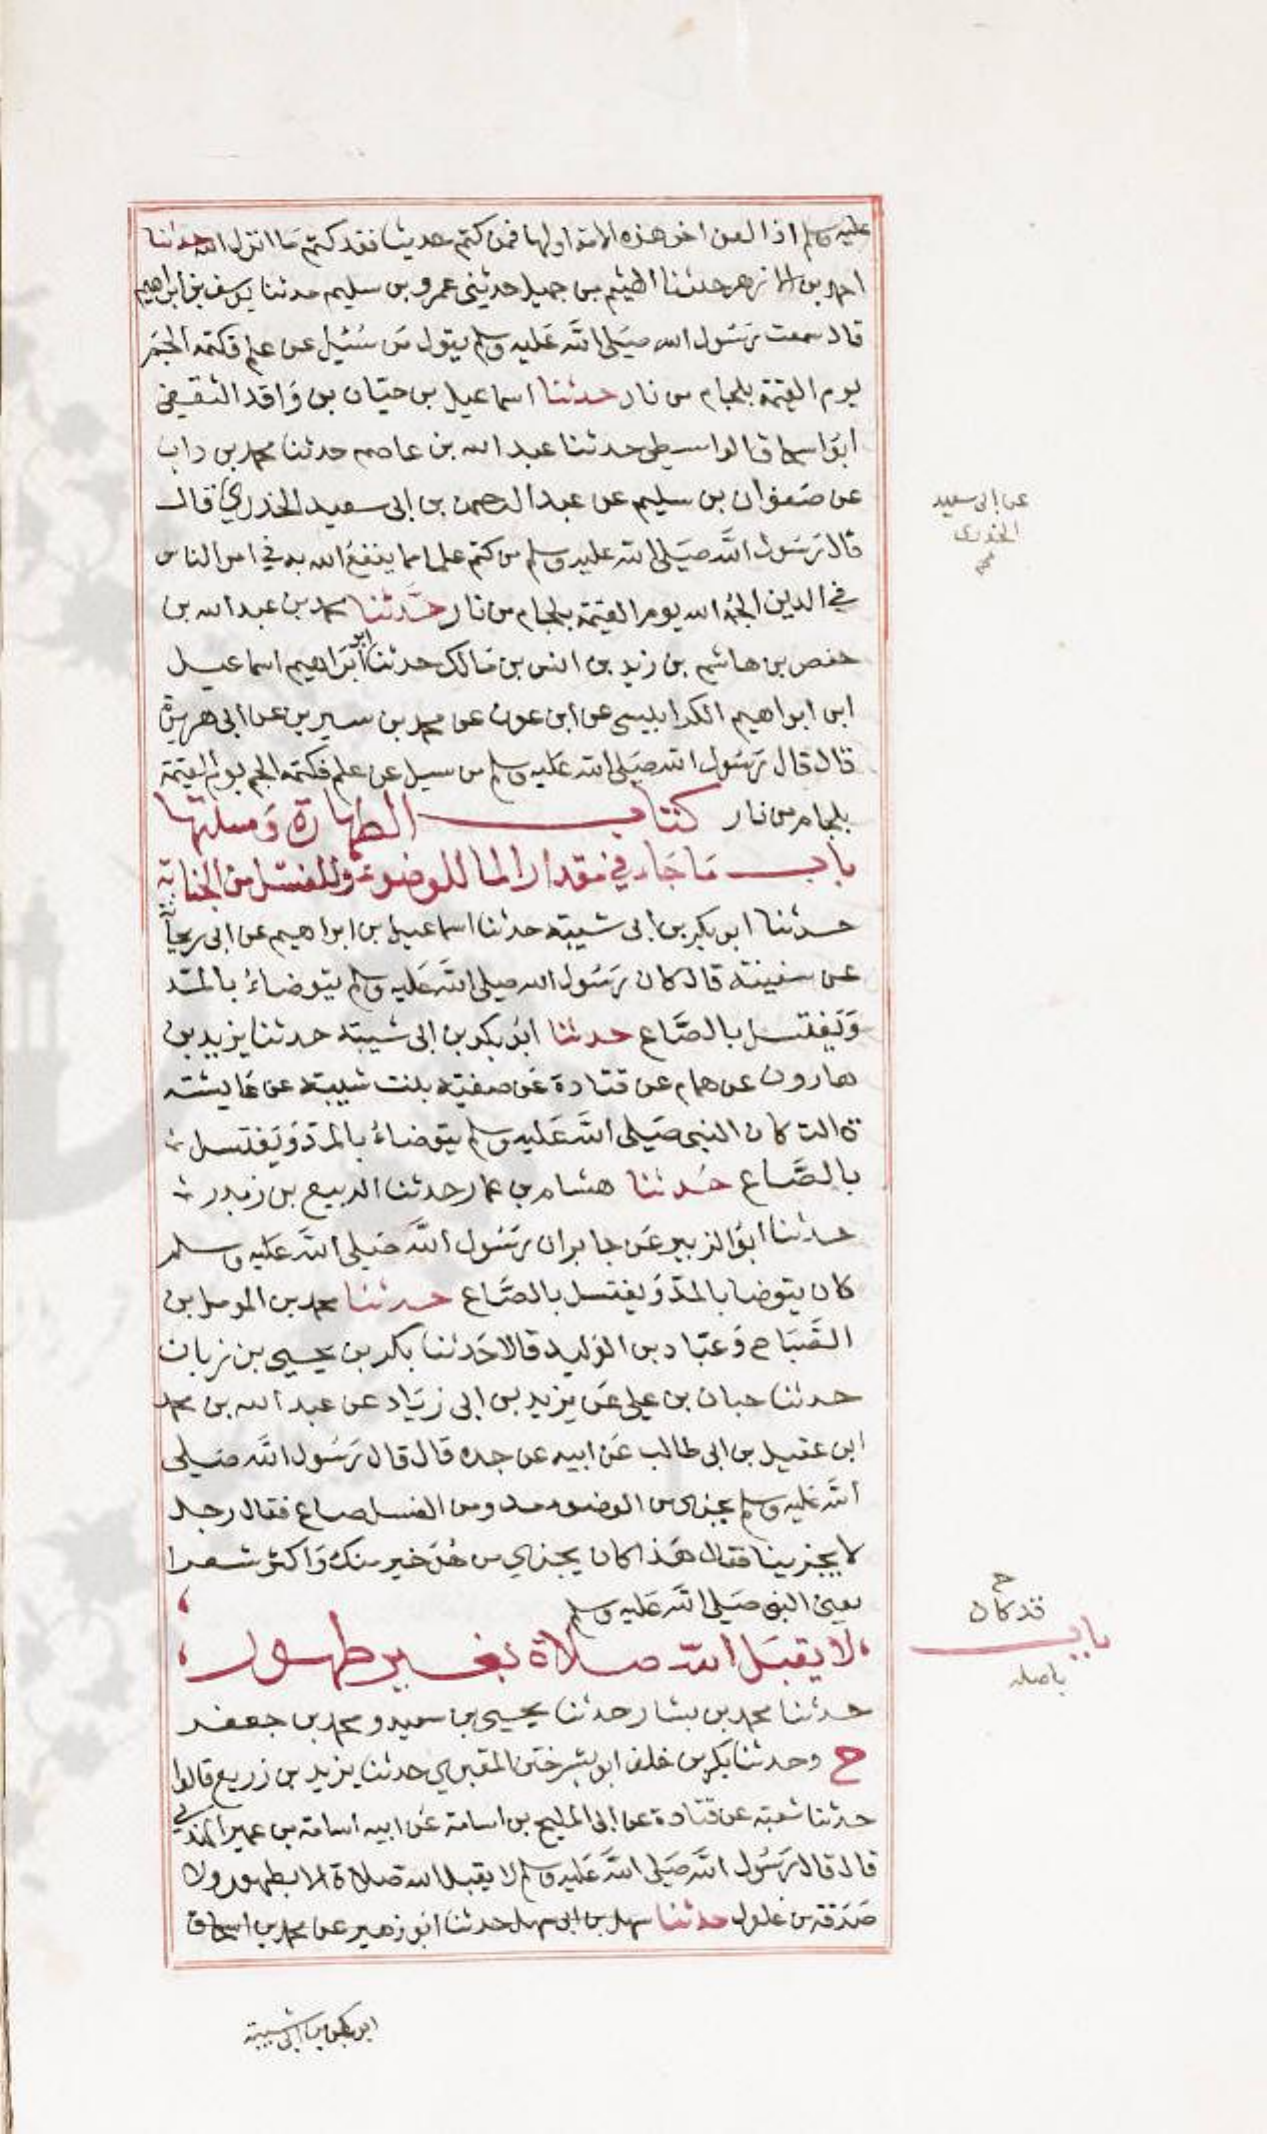 عليه وسلم اذا لعن اخر هذه الامة اولها فمن كتم حديثا فقد كتم ما انزل الله حدثنا
احمد بن الازهر حدثنا الهيثم بن جميل حدثني عمرو بن سليم حدثنا يوسف بن ابراهيم
قال سمعت رسول الله صلى الله عليه وسلم يقول من سئيل عن علم فكتمه الجم
يوم القيمة بلجام من نار حدثنا اسماعيل بن حبان بن واقد الثقفي
ابو اسحاق الواسطي حدثنا عبد الله بن عاصم حدثنا محمد بن داب
عن صفوان بن سليم عن عبد الرحمن بن ابي سعيد الخدري قال
عن ابي سعيد
الخدري
صح
قال رسول الله صلى الله عليه وسلم من كتم علما مما ينفع الله به في امر الناس
في الدين الجمه الله يوم القيمة بلجام من نار حدثنا محمد بن عبد الله بن
حفص بن هاشم بن زيد بن انس بن مالك حدثنا ابو ابراهيم اسماعيل
ابن ابراهيم الكرابيسي عن ابن عون عن محمد بن سيرين عن ابي هريرة
قال قال رسول الله صلى الله عليه وسلم من سيل عن علم فكتمه الجم يوم القيمة
بلجام من نار كتاب الطهارة وسننها
باب ما جاء في مقدار الما للوضوء وللغسل من الجنابة
حدثنا ابو بكر بن ابي شيبة حدثنا اسماعيل بن ابراهيم عن ابي ريحانة
عن سفينة قال كان رسول الله صلى الله عليه وسلم يتوضاء بالمد
ويغتسل بالصاع حدثنا ابو بكر بن ابي شيبة حدثنا يزيد بن
هارون عن همام عن قتادة عن صفية بنت شيبة عن عايشة
قالت كان النبي صلى الله عليه وسلم يتوضاء بالمد ويغتسل
بالصاع حدثنا هشام بن عمار حدثنا الربيع بن زيدر
حدثنا ابو الزبير عن جابر ان رسول الله صلى الله عليه وسلم
كان يتوضا بالمد ويغتسل بالصاع حدثنا محمد بن المومل بن
الصباح وعباد بن الوليد قالا حدثنا بكر بن يحيى بن زبان
حدثنا حبان بن علي عن يزيد بن ابي زياد عن عبد الله بن محمد
ابن عقيل بن ابي طالب عن ابيه عن جده قال قال رسول الله صلى
الله عليه وسلم يجزي من الوضوء مد ومن الغسل صاع فقال رجل
لا يجزينا فقال هذا كان يجزي من هو خير منك واكثر شعرا
يعني النبي صلى الله عليه وسلم
قد كان
باب
باصله
لا يقبل الله صلاة بغير طهور
حدثنا محمد بن بشار حدثنا يحيى بن سعيد و محمد بن جعفر
ح وحدثنا بكر بن خلف ابو بشر ختن المقبري حدثنا يزيد بن زريع قالوا
حدثنا شعبة عن قتادة عن ابي المليح بن اسامة عن ابيه اسامة بن عمير الهذلي
قال قال رسول الله صلى الله عليه وسلم لا يقبل الله صلاة الا بطهور ولا
صدقة من غلول حدثنا سهل بن ابي سهل حدثنا ابو زهير عن محمد بن اسحاق
ابو بكر بن ابي شيبة